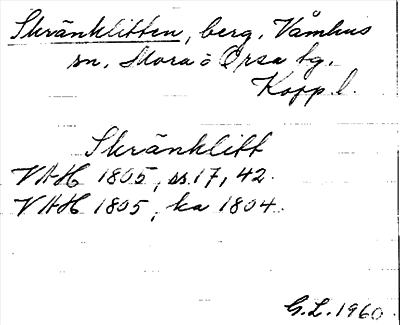 Skränklitten, berg, Våmhus
sn. Mora o Orsa tg.
Kopp. l.
Skränklitt
VAH 1805, ss. 17, 42.
VAH 1805, ka 1804.
G.L. 1960.